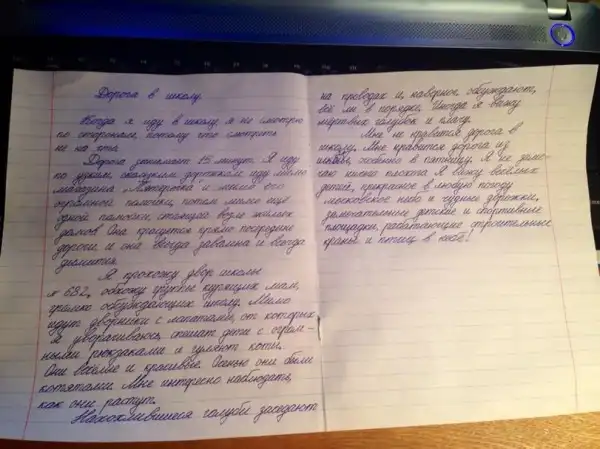 Дорога в школу.
Когда я иду в школу, я не смотрю
по сторонам, потому что смотреть
не на что.
Дорога занимает 15 минут. Я иду
по узким, скользким дорожкам, иду мимо
магазина "Пятёрочка" и мимо его
огромной помойки, потом мимо ещё
одной помойки, стоящей возле жилых
домов. Она красуется прямо посредине
дороги и она всегда завалена и всегда
дымится.
Я прохожу двор школы
№ 682, обхожу группы курящих мам,
громко обсуждающих школу. Мимо
идут дворники с лопатами, от которых
я уворачиваюсь, спешат дети с огром-
ными рюкзаками и гуляют коты.
Они весёлые и красивые. Осенью они были
котятами. Мне интересно наблюдать,
как они растут.
Нахохлившиеся голуби заседают
на проводах и, наверное, обсуждают,
всё ли в порядке. Иногда я вижу
мёртвых голубей и плачу.
Мне не нравится дорога в
школу. Мне нравится дорога из
школы, особенно в пятницу. Я не заме-
чаю ничего плохого. Я вижу весёлых
детей, прекрасное в любую погоду
московское небо и чудные дорожки,
замечательные детские и спортивные
площадки, работающие строительные
краны и птиц в небе!